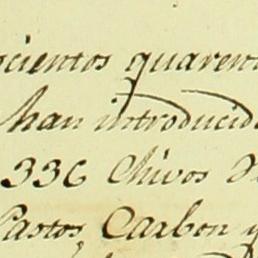 ocientos quaren
han introducid
336 Chivos
Pastos, Carbon y